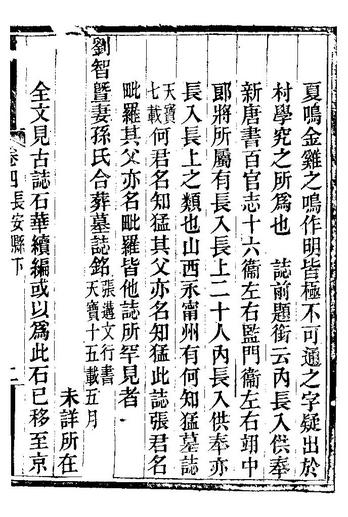 夏鳴金雞之鳴作明皆極不可通之字疑出於
村學究之所爲也　誌前題銜云內長入供奉
新唐書百官志十六衞左右監門衞左右翊中
郎將所屬有長入長上二十人內長入供奉亦
長入長上之類也山西永甯州有何知猛墓誌
天寶七載何君名知猛其父亦名知猛此誌張君名
毗羅其父亦名毗羅皆他誌所罕見者
劉智曁妻孫氏合葬墓誌銘張遘文行書天寶十五載五月
未詳所在
全文見古誌石華續編或以爲此石已移至京
卷四長安縣下
二